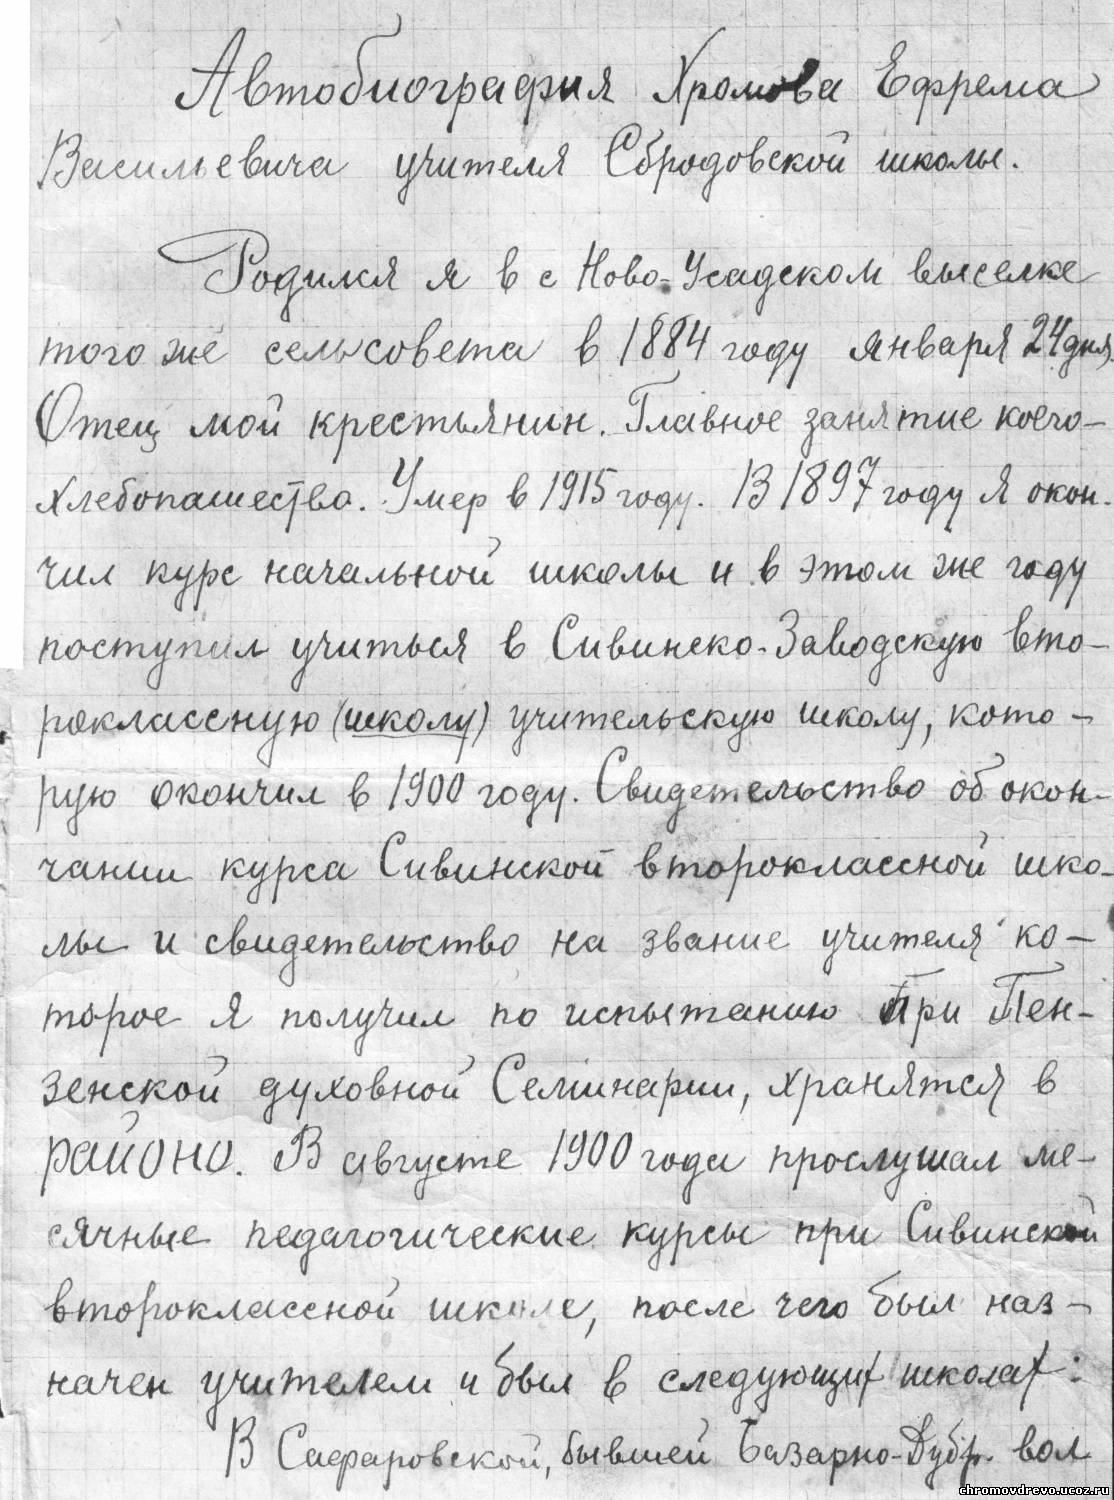 Автобиография Хромова Ефрема
Васильевича учителя Сбродовской школы.
Родился я в с Ново-Усадском выселке
того же сельсовета в 1884 году января 24 дня.
Отец мой крестьянин. Главное занятие коего-
хлебопашество. Умер в 1915 году. В 1897 году я окон-
чил курс начальной школы и в этом же году
поступил учиться в Сивинско-Заводскую вто-
роклассную (школу) учительскую школу, кото-
рую окончил в 1900 году. Свидетельство об окон-
чании курса Сивинской второклассной шко-
лы и свидетельство на звание учителя ко-
торое я получил по испытанию при Пен-
зенской духовной Семинарии, хранятся в
РАЙОНО. В августе 1900 года прослушал ме-
сячные педагогические курсы при Сивинской
второклассной школе, после чего был наз-
начен учителем и был в следующих школах:
В Сафаровской, бывшей Базарно-Дубр. вол
chromovdrevo.ucoz.ru